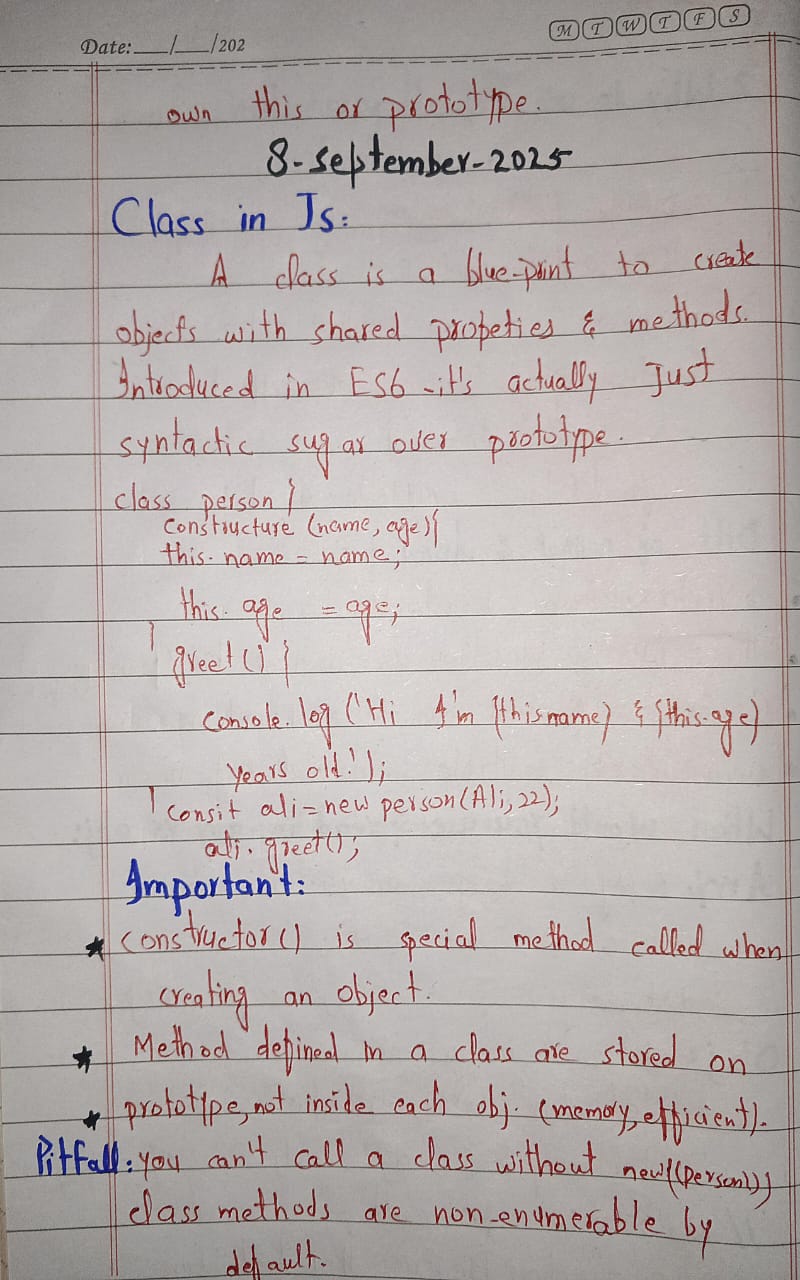 Date:___/___/202
M T W T F S
own this or prototype.
8-september-2025
Class in Js:
A class is a blue-print to create
objects with shared propeties & methods.
Introduced in ES6 -it's actually Just
syntactic sugar over prototype.
class person {
constructure (name, age){
this.name = name;
this.age = age;
}
greet () {
console.log ('Hi I'm {thisname} & {this.age}
years old!');
}
consit ali=new person(Ali,22);
ali.greet();
Important:
* constructor() is special method called when
creating an object.
* Method defined in a class are stored on
* prototype, not inside each obj. (memory, efficient).
Pitfall: you can't call a class without new((person))
class methods are non-enumerable by
default.